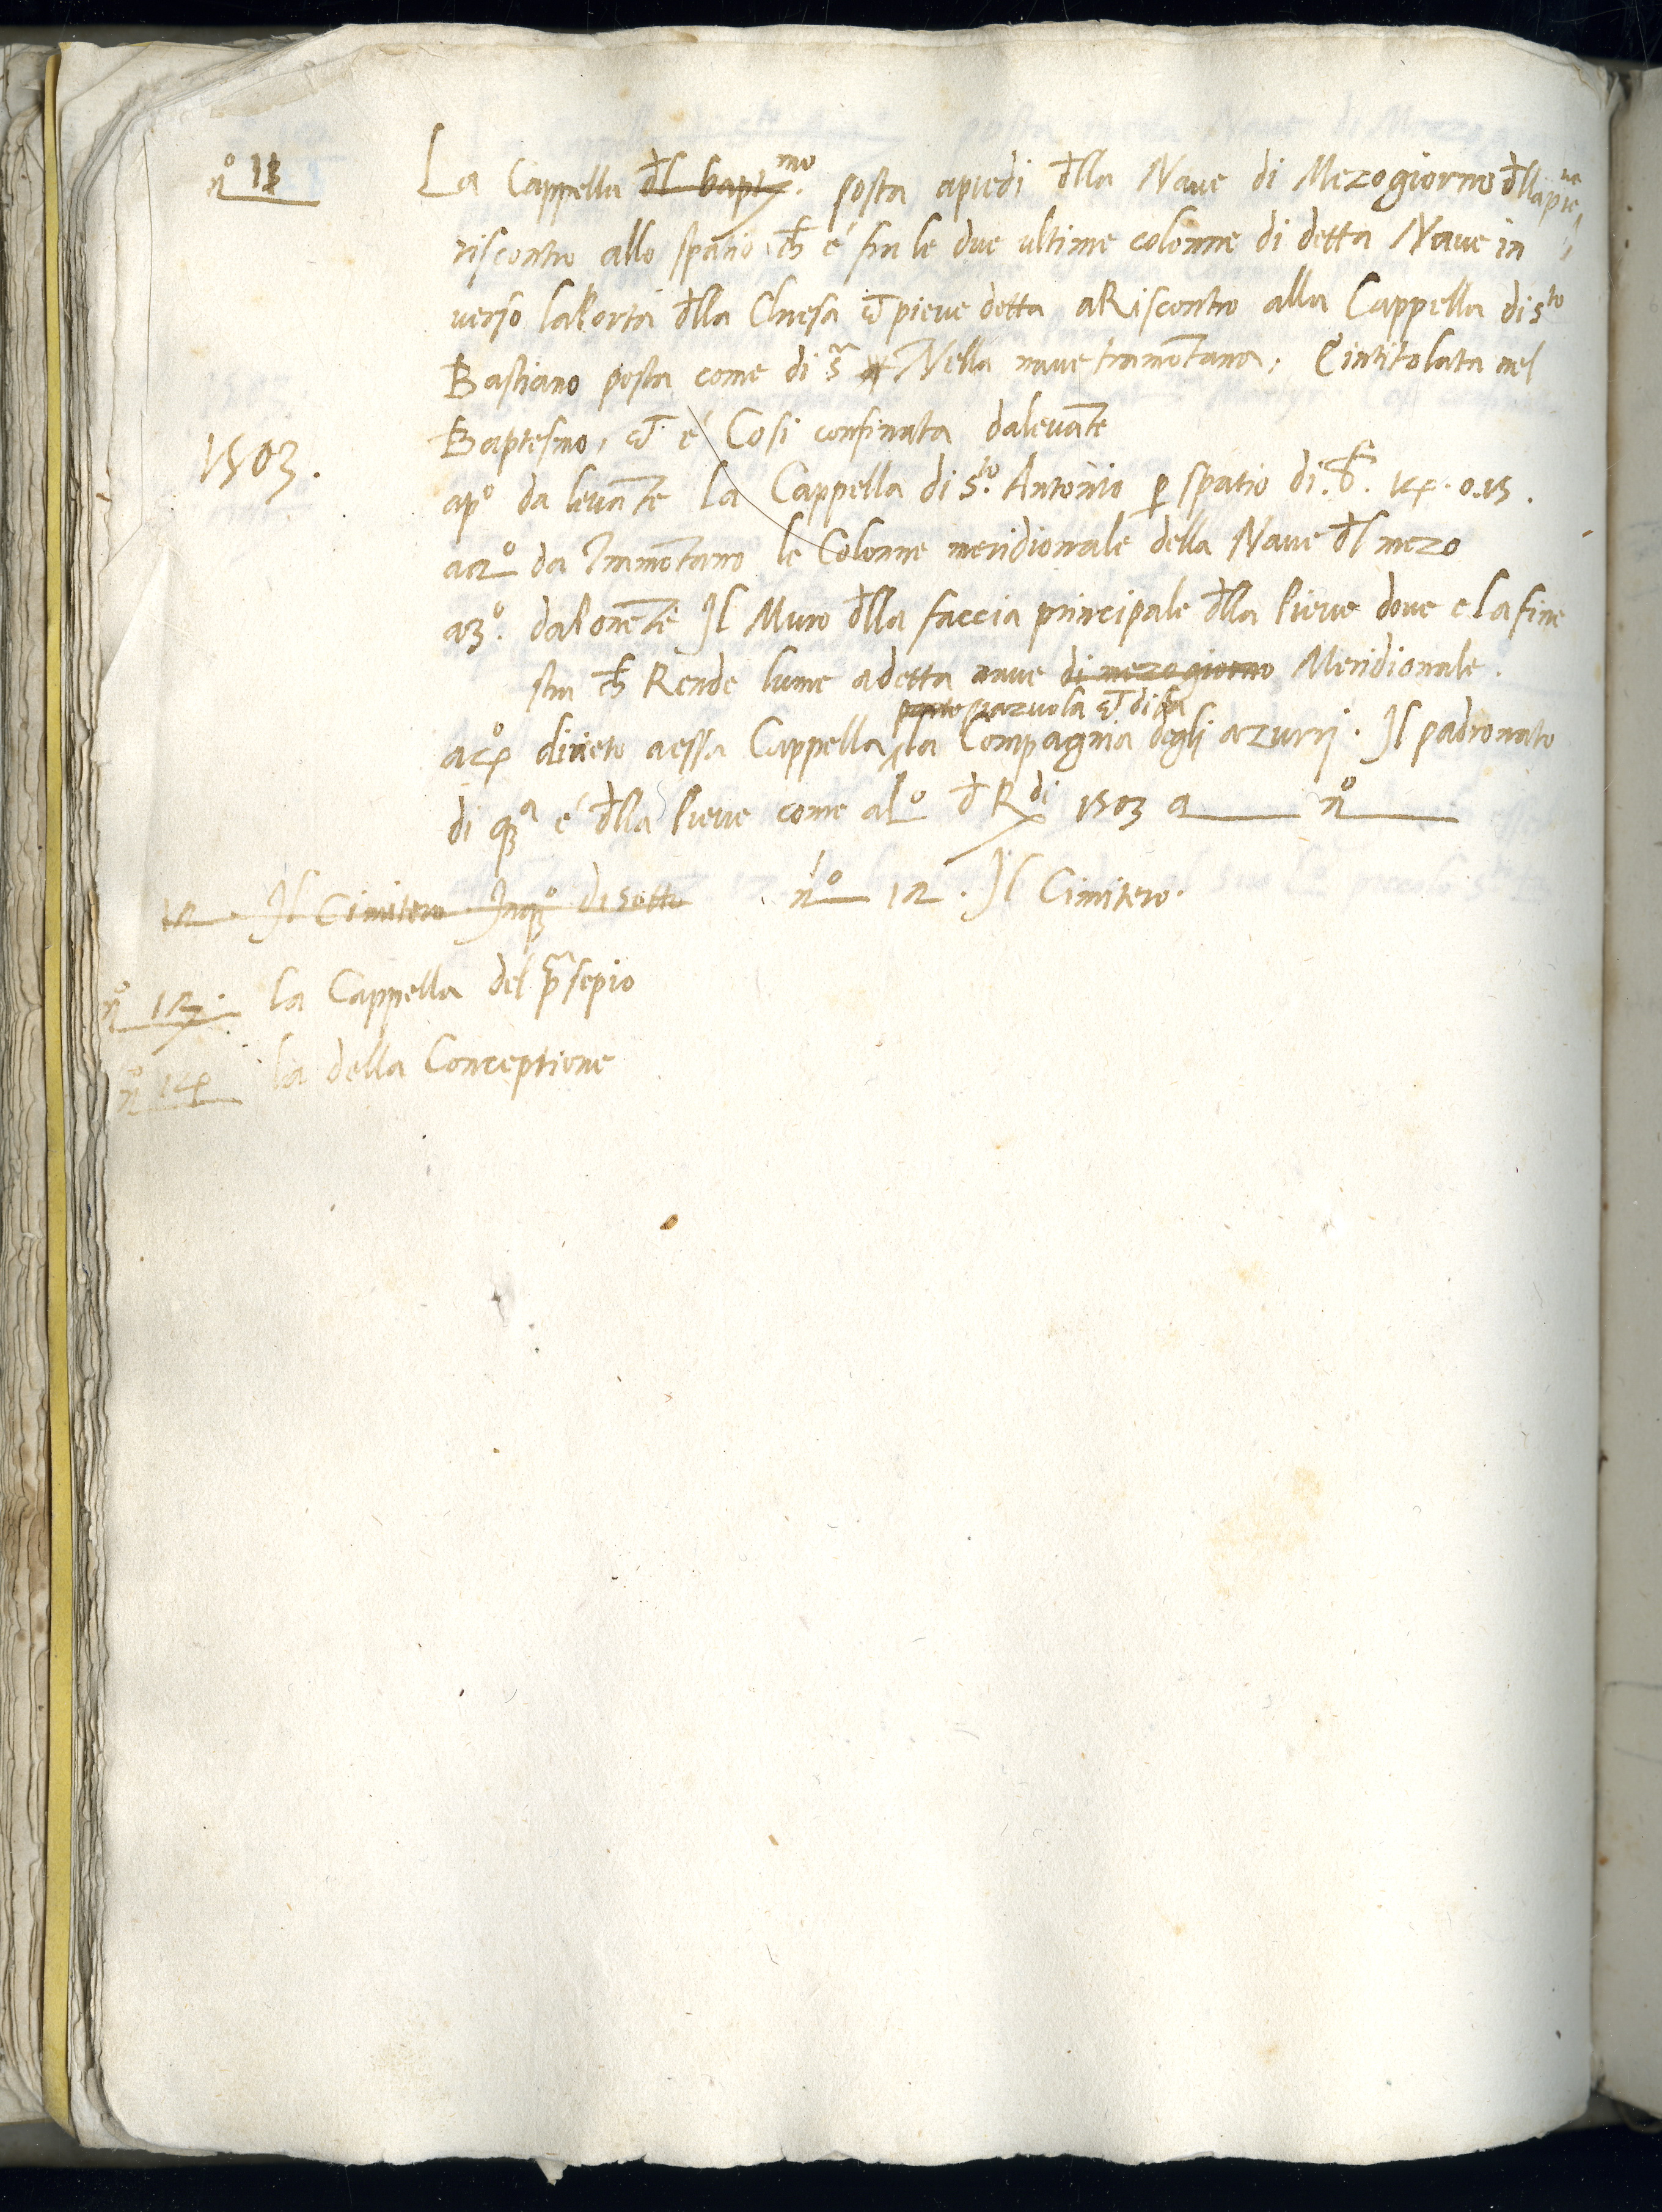 n.º 11
La Cappella d̄l bapt.mo posta apiedi d̄lla Nave di Mezogiorno d̄lla pie ue
riscontro allo spatio ch̄ é fra le due ultime colonne di detta Nave in
verso la Porta d̄lla Chiesa et pieve detta aRiscontro alla Cappella di s.to
Bastiano posta come di s.a Nella nave tramōtana. E intitolata nel
Baptesmo, et é Cosi confinata dalevāte
1503.
ap.º da levāte la Cappella di s.to Antonio p spatio di b. 14. 0. 15.
a2.º da Tramōtano le Colonne meridionale della Nave d̄l mezo
a3.º dalonēte Il Muro d̄lla faccia principale d̄lla Pieve dove e la fine
stra ch̄ Rende lume adetta nave di mezogiorno Meridionale.
a4.º drieto aessa Cappella la Compagnia degli azurri. Il padronato
di q.a é d̄lla Pieve come al P.º d̄ R.di 1503 a n.º
12 Il Cimitero Inq.º disotto n.º 12. Il Cimitero.
n.º 13. la Cappella del p̄sepio
n.º 14 la della Conceptione